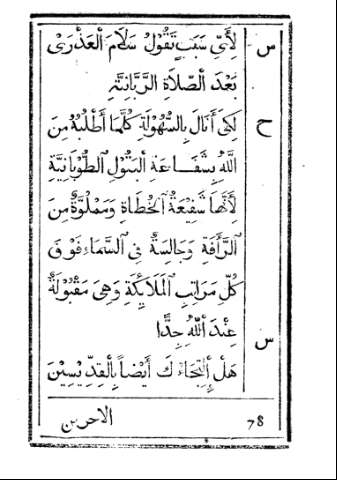 س لِأَيِّ سَبَبٍ تَقُولُ سَلَامَ ٱلْعَذْرَىْ
بَعْدَ ٱلصَّلَاةِ الرَّبَّانِيَّةِ
ح لِكَىْ أَنَالَ بِالسُّهُولَةِ كُلَّمَا أَطْلُبُهُ مِنَ
ٱللَّهِ بِشَفَاعَةِ ٱلْبَتُولِ ٱلطُّوبَانِيَّةِ
لِأَنَّهَا شَفِيعَةُ ٱلْخُطَاةِ وَمَمْلُوَّةٌ مِنَ
ٱلرَّأْفَةِ وَجَالِسَةٌ فِي ٱلسَّمَاءِ فَوْقَ
كُلِّ مَرَاتِبِ ٱلْمَلَايِكَةِ وَهِيَ مَقْبُولَةٌ
عِنْدَ ٱللَّهِ جِدًّا
س هَلْ إِلْتِجَاءُكَ أَيْضاً بِٱلْقِدِّيسِيْنَ
78 الاخرين